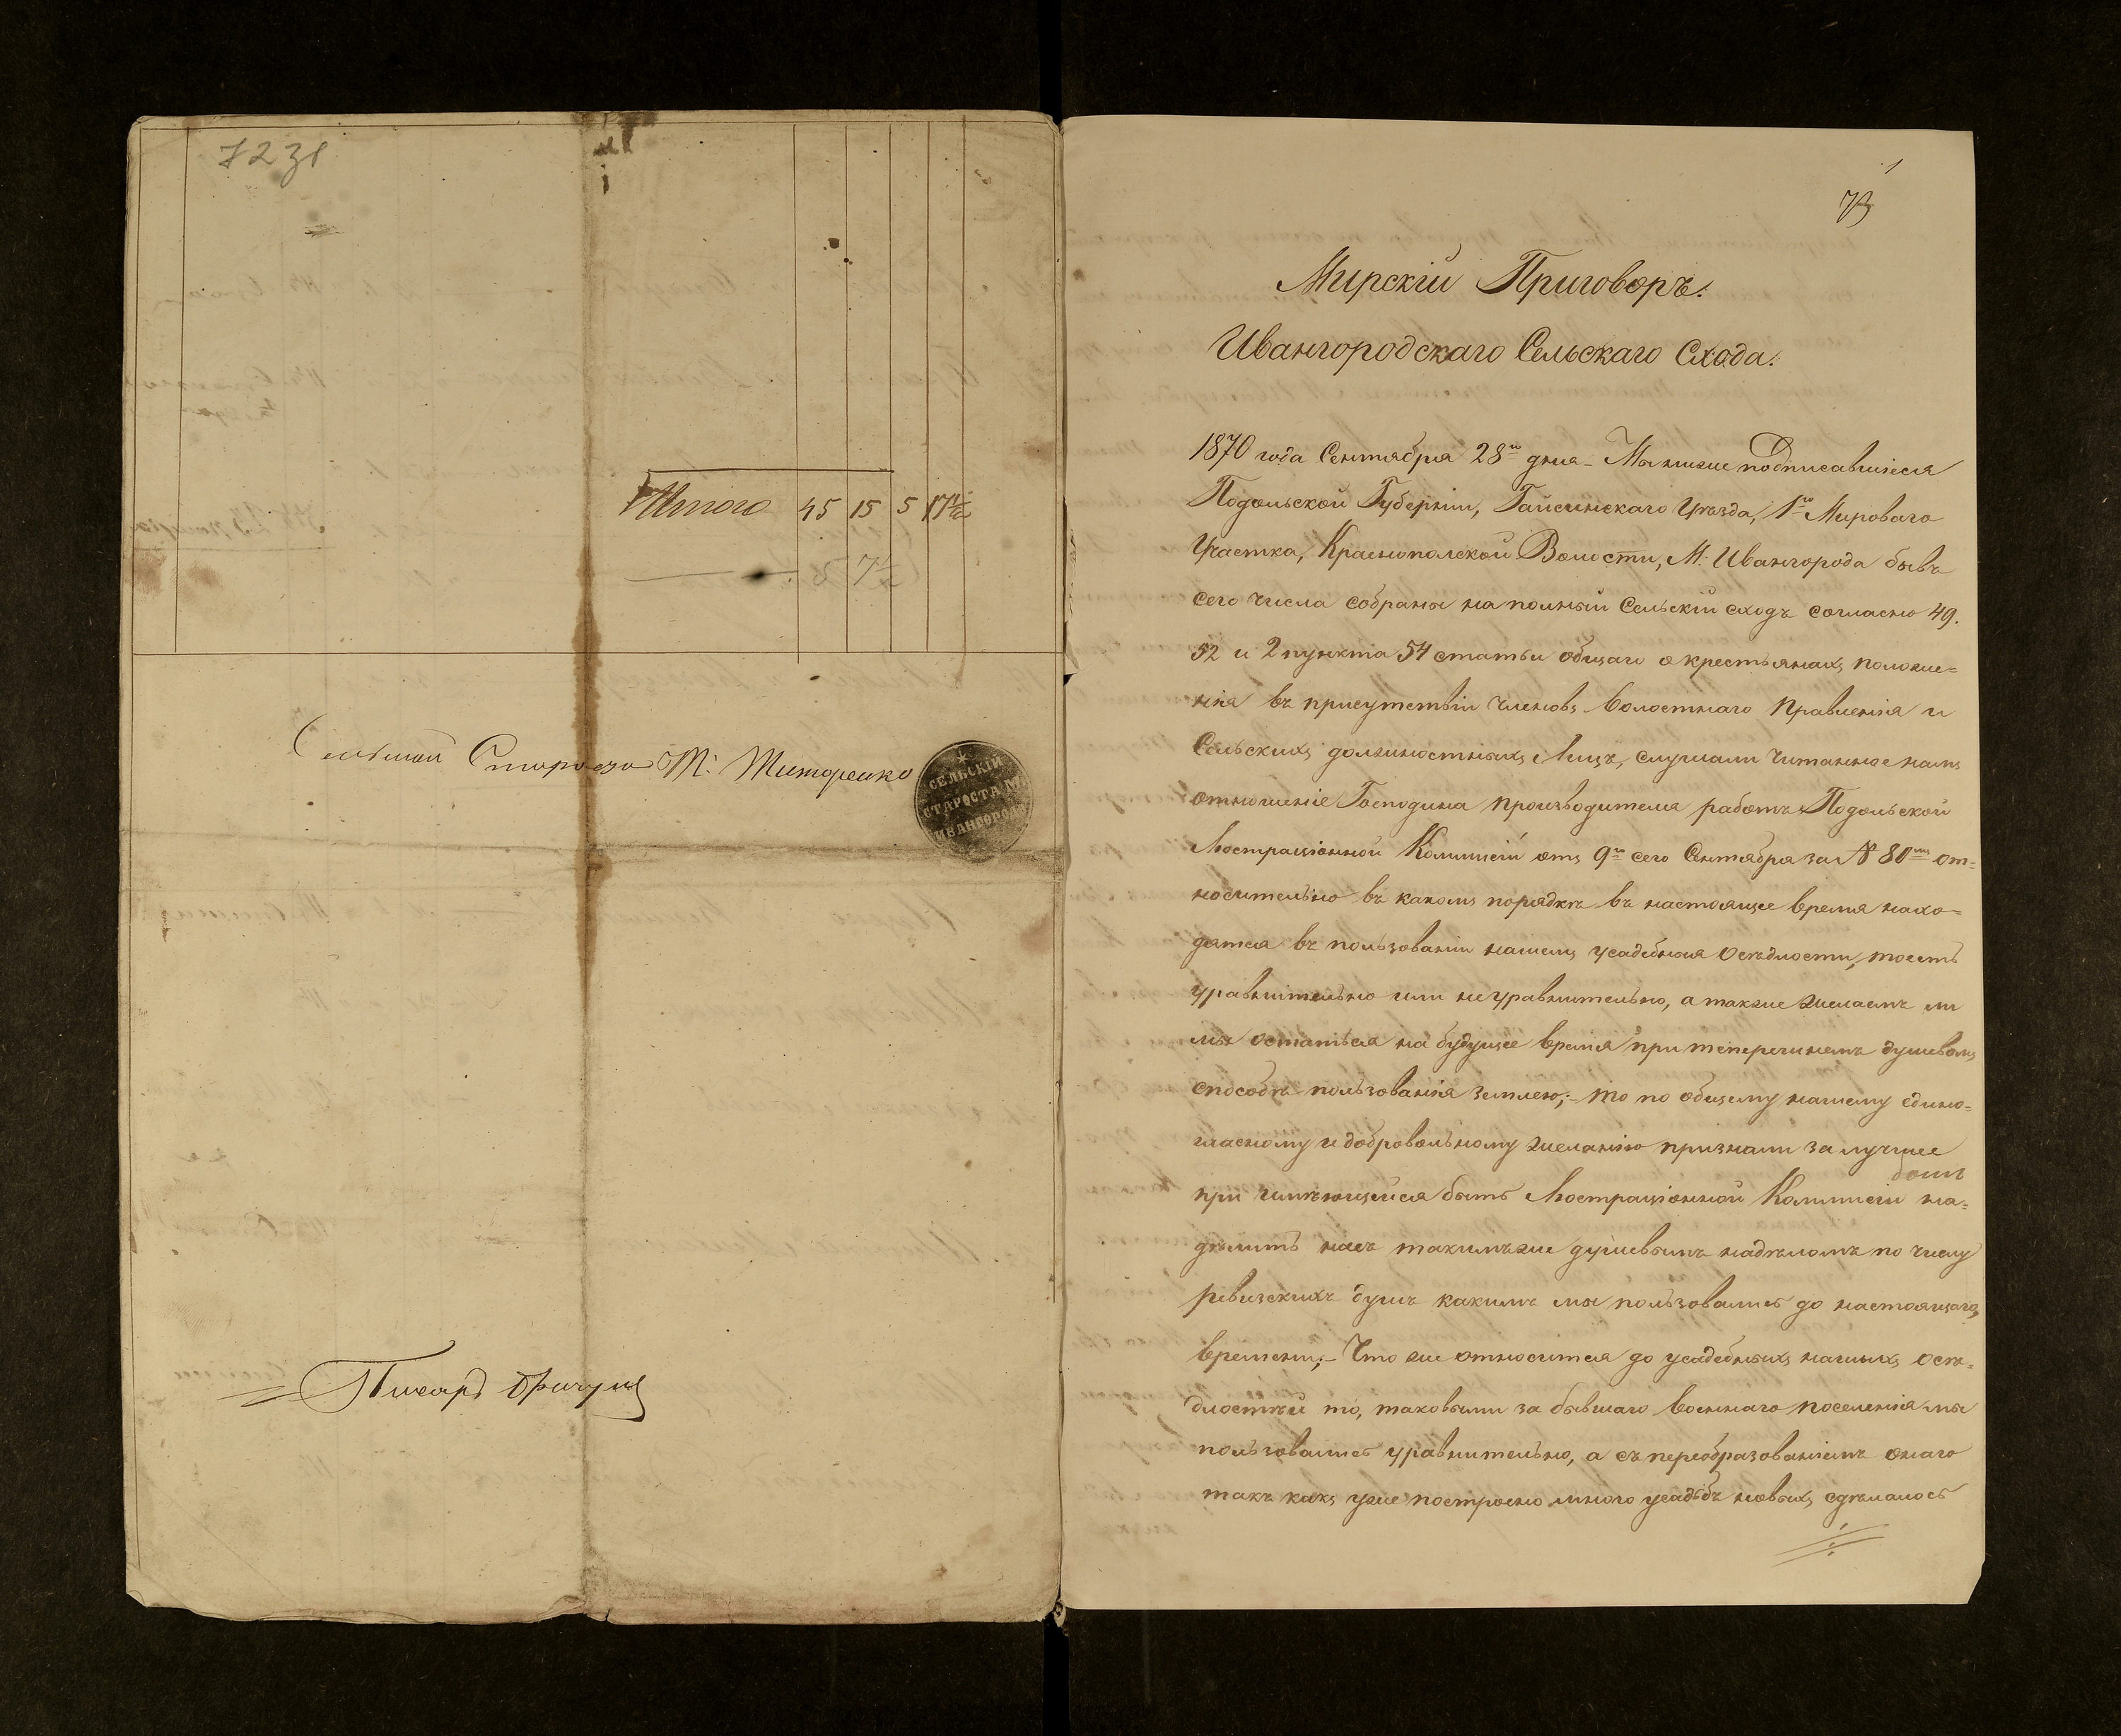 72 зв
Итого 45 15 5 17½
5 7½
Сельский Староста М: Титаренко
СЕЛЬСКІЙ
СТАРОСТА М.
ИВАНГОРОДЪ
Писарь
73
Мирскій Приговоръ.
Ивангородскаго Сельскаго Схода.
1870 года Сентября 28го дня - Мы ниже подписавшіеся
Подольской Губерніи, Гайсинскаго Уѣзда, 1го Мироваго
Участка, Краснополской Волости, М: Ивангорода бывъ
сего числа собраны на полный Сельскій сходъ согласно 49.
52 и 2 пункта 54 статьи общаго о крестьянахъ положе=
нія въ присутствіи членовъ Волостнаго Правленія и
Сельскихъ должностныхъ Лицъ, слушали читанное намъ
отношеніе Господина производителя работъ Подольской
Люстраціонной Коммисіи отъ 9го сего Сентября за № 80мъ от=
носительно въ какомъ порядкѣ въ настоящее время нахо=
дятся въ пользованіи нашемъ усадебныя Осѣдлости, тоесть
уравнительно или не уравнительно, а также желаемъ ли
мы остаться на будущее время при теперешнемъ душевомъ
способѣ пользованія землею; - то по общему нашему едино=
гласному и добровольному желанію признали за лучшее
при имѣющейся быть Люстраціонной Коммисіи на=
дѣлить насъ такимъ же душевымъ надѣломъ по числу
ревизскихъ душъ какимъ мы пользовались до настоящаго
времени; - Что же относится до усадебныхъ нашихъ осѣ=
длостей то, таковыми за бывшаго военнаго поселенія мы
пользовались уравнительно, а съ переобразованіемъ онаго
такъ какъ уже построено много усадьбъ новыхъ сдѣлалось